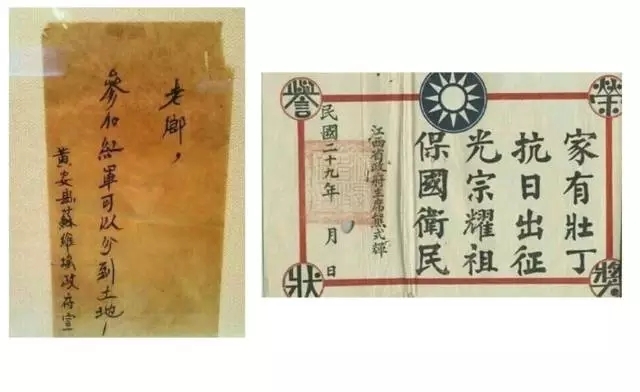 老鄉，
參加紅軍可以分到土地！
黃安縣蘇維埃政府宣
榮譽
獎狀
家有壯丁
抗日出征
光宗耀祖
保國衛民
江西省政府主席熊式輝
民國二十九年 月 日